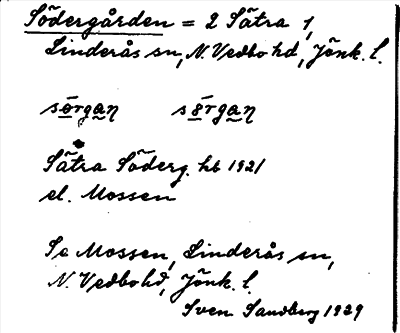 Södergården = 2 Sätra 1,
Linderås sn, N. Vedbo hd, Jönk. l.
sörgaŋ sörgaŋ
Sätra Söderg. hb 1921
el. Mossen
Se Mossen, Linderås sn,
N. Vedbo hd, Jönk. l.
Sven Sandberg 1929